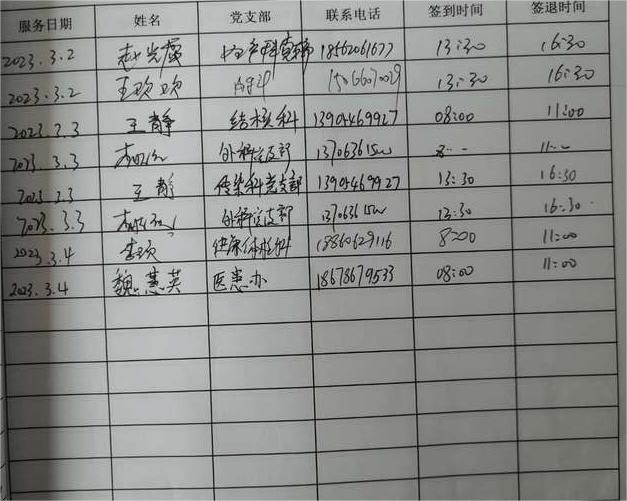 服务日期 姓名 党支部 联系电话 签到时间 签退时间
2023.3.2 妇产科党支部 18562061677 13:30 16:30
2023.3.2 王欢欢 内科 13:30 16:30
2023.3.3 王静 结核科 13905469927 08:00 11:00
2023.3.3 外科党支部 8-- 11--
2023.3.3 王静 传染科党支部 13905469927 13:30 16:30
2023.3.3 外科党支部 13:30 16:30
2023.3.4 健康体检科 18860629116 8:00 11:00
2023.3.4 魏慧英 医患办 18678679533 08:00 11:00